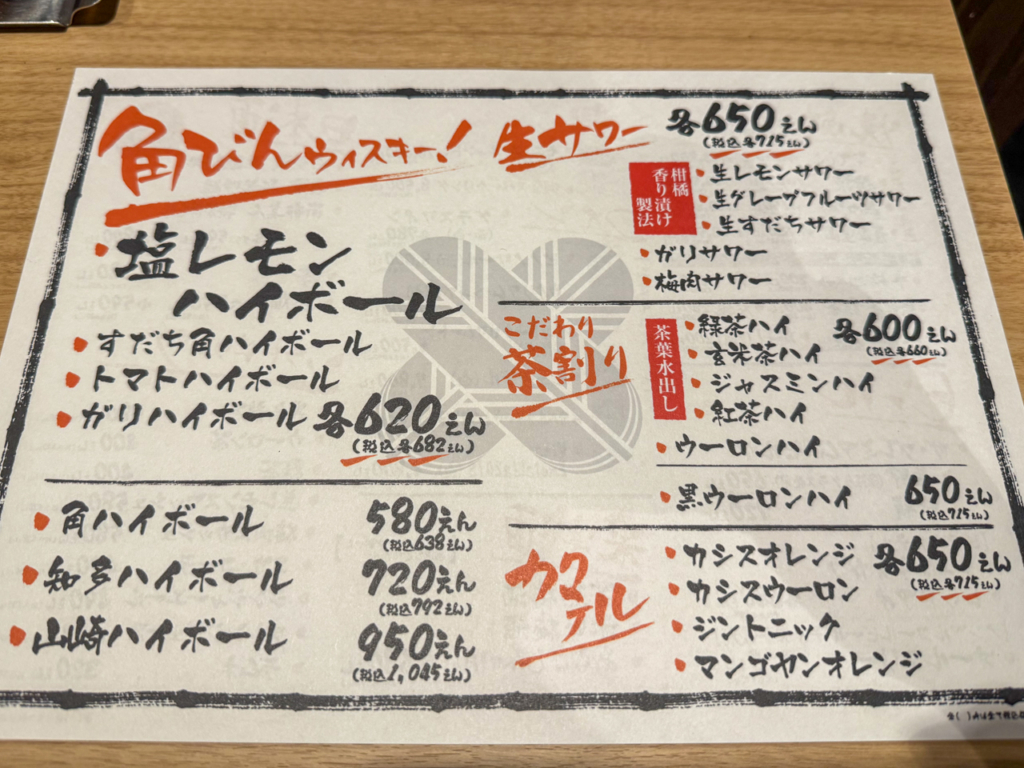 角びんウィスキー!
・塩レモン
ハイボール
・すだち角ハイボール
・トマトハイボール
・ガリハイボール 各620えん
(税込各682えん)
・角ハイボール 580えん
(税込638えん)
・知多ハイボール 720えん
(税込792えん)
・山崎ハイボール 950えん
(税込1,045えん)
生サワー 各650えん
(税込各715えん)
柑橘
香り漬け
製法
・生レモンサワー
・生グレープフルーツサワー
・生すだちサワー
・ガリサワー
・梅肉サワー
こだわり
茶割り
茶葉水出し
・緑茶ハイ 各600えん
(税込各660えん)
・玄米茶ハイ
・ジャスミンハイ
・紅茶ハイ
・ウーロンハイ
・黒ウーロンハイ 650えん
(税込715えん)
カクテル
・カシスオレンジ 各650えん
(税込各715えん)
・カシスウーロン
・ジントニック
・マンゴヤンオレンジ